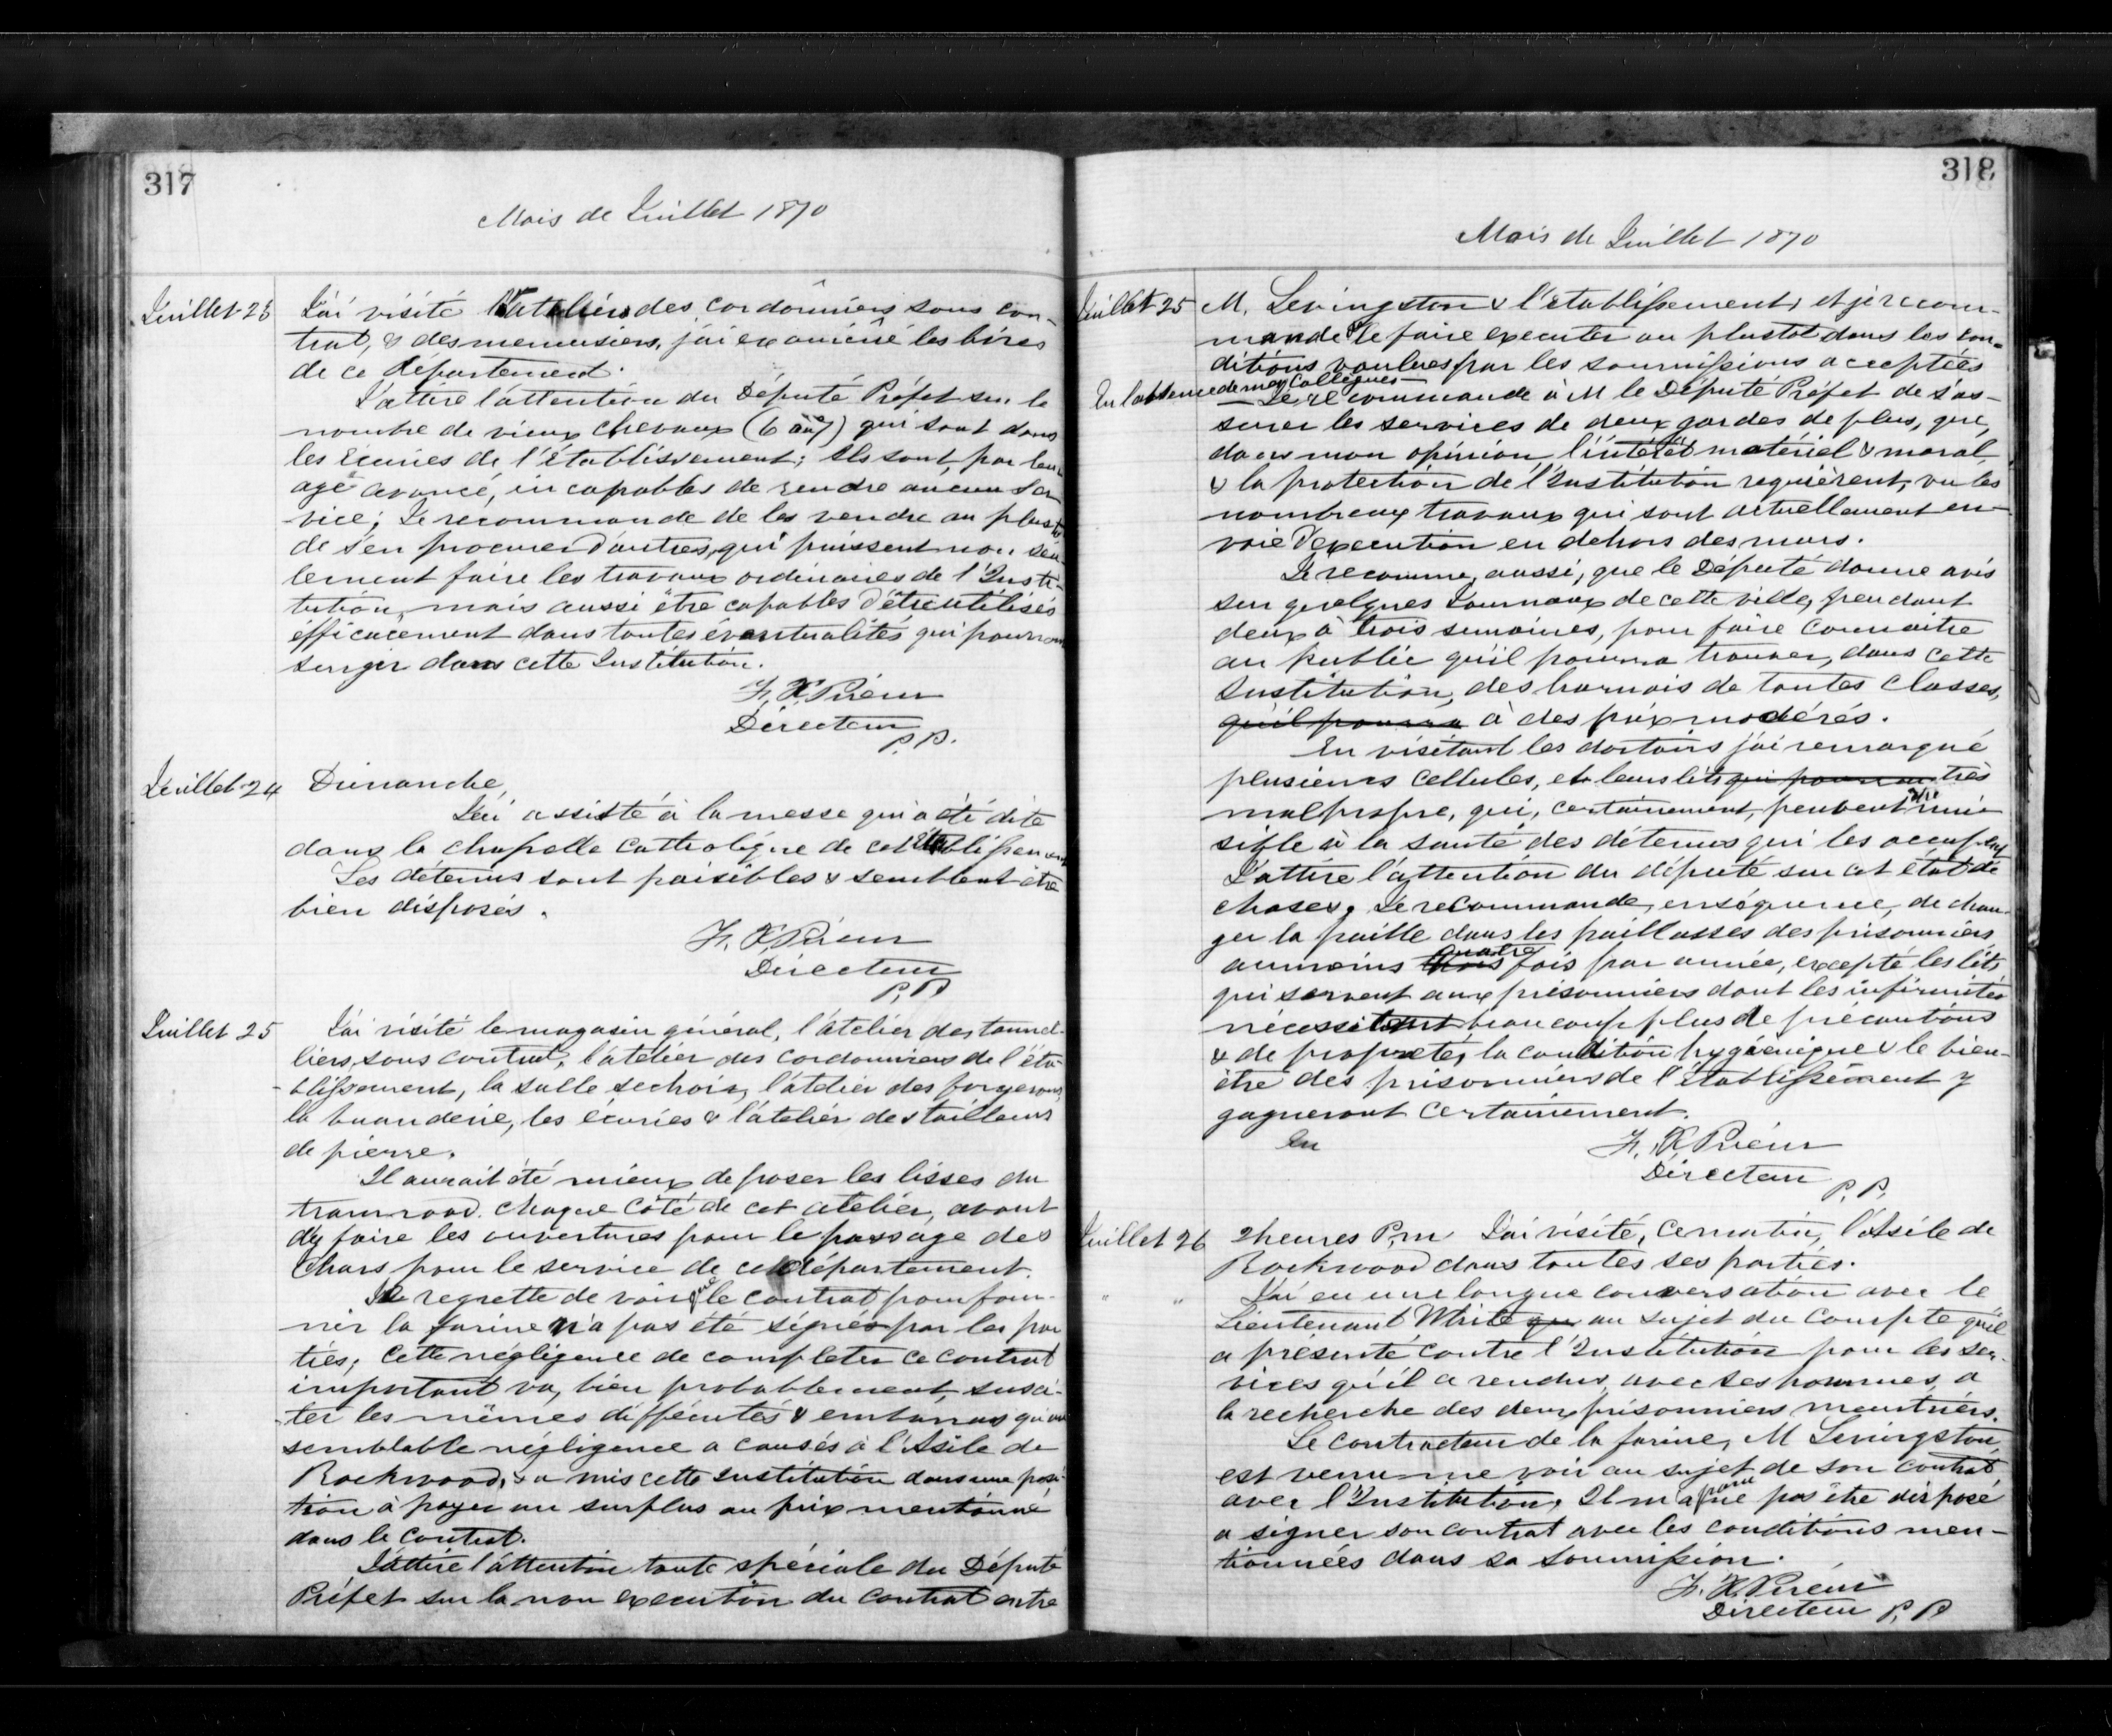 317
Mois de Juillet 1870
Juillet 23 J'ai visité l'atelier des cordonniers sous con-
trat, & des menuisiers, j'ai examiné les livres
de ce Département.
J'attire l'attention du Député Préfet sur le
nombre de vieux chevaux (6 au 7) qui sont dans
les Écuries de l'établissement; Ils sont, par leur
age avancé, incapables de rendre aucun ser
vice; Je recommande de les vendre au plustot
de s'en procurer d'autres, qui puissent non seu-
lement faire les travaux ordinaires de l'Insti-
tution, mais aussi être capables d'être utilisés
éfficacement dans toutes éventualités qui pourront
surgir dans cette Institution.
F. X. Prieur
Directeur
P. P.
Juillet 24 Dimanche,
J'ai assisté à la messe qui a été dite
dans la chapelle catholique de cet Etablissement
Les détenus sont paisibles & semblent être
bien disposés.
F. X. Prieur
Directeur
P. P.
Juillet 25 J'ai visité le magasin général, l'atelier des tonnel-
liers, sous contrat, l'atelier des cordonniers de l'éta-
blissement, la salle sechoir, l'atelier des forgerons,
la buanderie, les écuries & l'atelier des tailleurs
de pierre.
Il aurait été mieux de poser les lisses du
tram road. chaque côté de cet atelier, avant
d'y faire les ouvertures pour le passage des
Chars pour le service de ce département.
Je regrette de voir que le contrat pour four-
nir la farine n'a pas été signés par les par
ties; Cette négligence de completer ce contrat
important va, bien probablement, susci-
ter les mêmes difficultés & embarras qu'une
semblable négligence a causés à l'Asile de
Rockwood, & a mis cette Institution dans une posi-
tion à payer un surplus au prix mentionné
dans le contrat.
J'attire l'attention toute spéciale du Député
Préfet sur la non execution du contrat entre
318
Mois de Juillet 1870
Juillet 25 M. Levingston & l'établissement, et je recom-
mande de le faire executer au plustot dans les con-
ditions voulues par les soumissions acceptées
En l'absence de mes Collègues
Je recommande à M le Député Préfet de s'as-
surer les services de deux gardes de plus, que,
dans mon opinion, l'intérêt matériel & moral,
& la protection de l'Institution requièrent, vu les
nombreux travaux qui sont actuellement en
voie d'execution en dehors des murs.
Je recomme, aussi, que le Député donne avis
sur quelques Journaux de cette ville, pendant
deux à trois semaines, pour faire connaitre
au Public qu'il pourra trouver, dans cette
Institution, des harnois de toutes classes,
qu'il pourra à des prix modérés.
En visitant les dortoirs j'ai remarqué
plusieurs cellules, et leurs lits qui pourront très
malpropre, qui, certainement, peuvent être nui-
sible à la santé des détenus qui les occupent
J'attire l'attention du député sur cet état de
choses. Je recommande, enséquence, de chan-
ger la paille dans les paillasses des prisonniers
aumoins trois quatre fois par année, excepté les lits
qui servent aux prisonniers dont les infirmités
nécessitent beaucoup plus de précautions
& de propreté, la condition hygiénique & le bien-
être des prisonniers de l'établissement y
gagneront certainement.
En
F. X. Prieur
Directeur
P. P.
Juillet 26 2 heures P.m J'ai visité, ce matin, l'Asile de
Rockwood dans toutes ses parties.
" " J'ai eu une longue conversation avec le
Lieutenant White que au sujet du compte qu'il
a présenté contre l'Institution pour les ser-
vices qu'il a rendus, avec ses hommes, a
la recherche des deux prisonniers meurtriers.
Le contracteur de la farine, M Levingston,
est venu me voir au sujet de son contrat
avec l'Institution. Il m'a paru ne pas être disposé
a signer son contrat avec les conditions men-
tionnées dans sa soumission.
F. X. Prieur
Directeur P. P